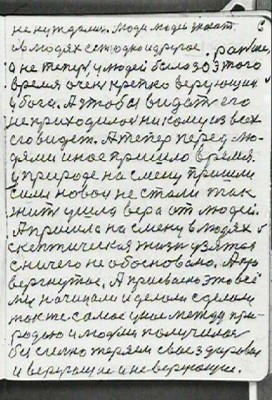 не нуждалися. Люди людей знают.
в людях сетодно и другое. раньше,
а не теперь, у людей было до этого
время очень крепко верующих
у бога. А чтобы видать его
не приходилося никому из всех
его видеть. А тепер перед лю-
дями иное пришло время.
у природе на смену пришли
сили новои не стали так
жить ушла вера от людей.
А пришла на смену в людях
скептическая жизнь узятая
с ничего не обосновано. А
вернутое. А правильно это всё
ми начинали и делом сделали
так же самое у нас между при-
родою и людми получилося
би силно теряем свое здоровье
и верующие и неверующие.